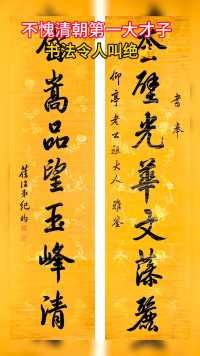 不愧清朝第一大才子
书法令人叫绝
書奉
仰亭老公祖大人雅鉴
壁光華文藻麗
嵩品望玉峰清
弟紀昀